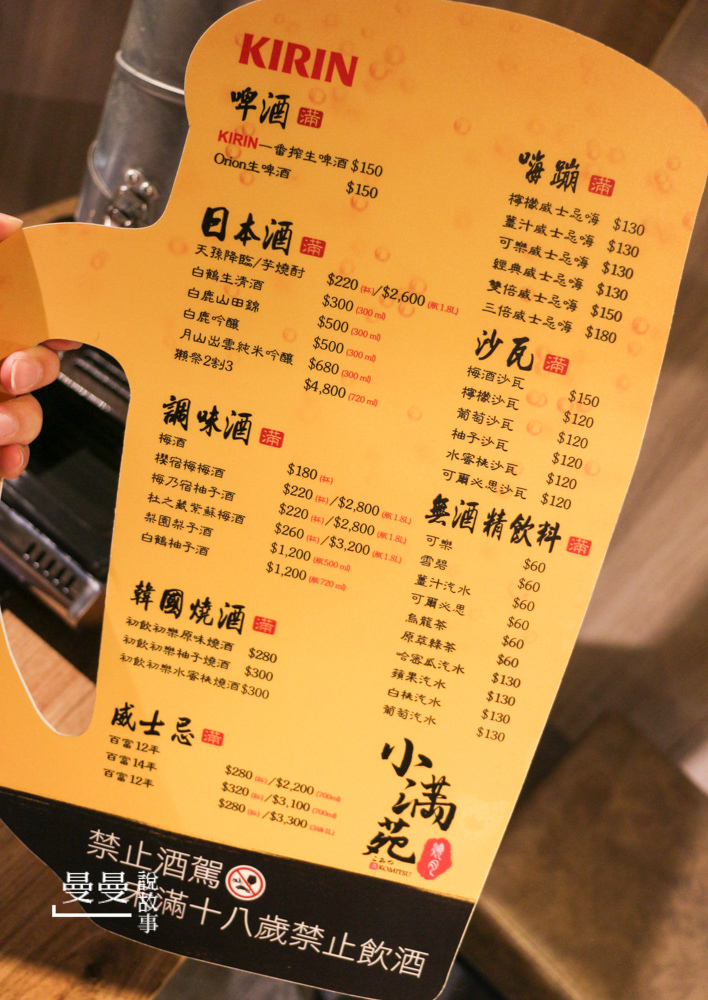 KIRIN
啤酒 滿
KIRIN一番搾生啤酒 $150
Orion生啤酒 $150
日本酒 滿
天孫降臨/芋燒酎 $220(杯)/$2,600(瓶1.8L)
白鶴生清酒 $300(300 ml)
白鹿山田錦 $500(300 ml)
白鹿吟釀 $500(300 ml)
月山出雲純米吟釀 $680(300 ml)
獺祭2割3 $4,800(720 ml)
調味酒 滿
梅酒 $180(杯)
櫻宿梅梅酒 $220(杯)/$2,800(瓶1.8L)
梅乃宿柚子酒 $220(杯)/$2,800(瓶1.8L)
杜之藏紫蘇梅酒 $260(杯)/$3,200(瓶1.8L)
梨園梨子酒 $1,200(瓶500 ml)
白鶴柚子酒 $1,200(瓶720 ml)
韓國燒酒 滿
初飲初樂原味燒酒 $280
初飲初樂柚子燒酒 $300
初飲初樂水蜜桃燒酒 $300
威士忌 滿
百富12年 $280(杯)/$2,200(700ml)
百富14年 $320(杯)/$3,100(700ml)
百富12年 $280(杯)/$3,300
嗨蹦 滿
檸檬威士忌嗨 $130
薑汁威士忌嗨 $130
可樂威士忌嗨 $130
經典威士忌嗨 $130
雙倍威士忌嗨 $150
三倍威士忌嗨 $180
沙瓦 滿
梅酒沙瓦 $150
檸檬沙瓦 $120
葡萄沙瓦 $120
柚子沙瓦 $120
水蜜桃沙瓦 $120
可爾必思沙瓦 $120
無酒精飲料 滿
可樂 $60
雪碧 $60
薑汁汽水 $60
可爾必思 $60
烏龍茶 $60
原萃綠茶 $60
哈密瓜汽水 $130
蘋果汽水 $130
白桃汽水 $130
葡萄汽水 $130
小滿苑
こみつ
KOMITSU
禁止酒駕
未滿十八歲禁止飲酒
曼曼說故事